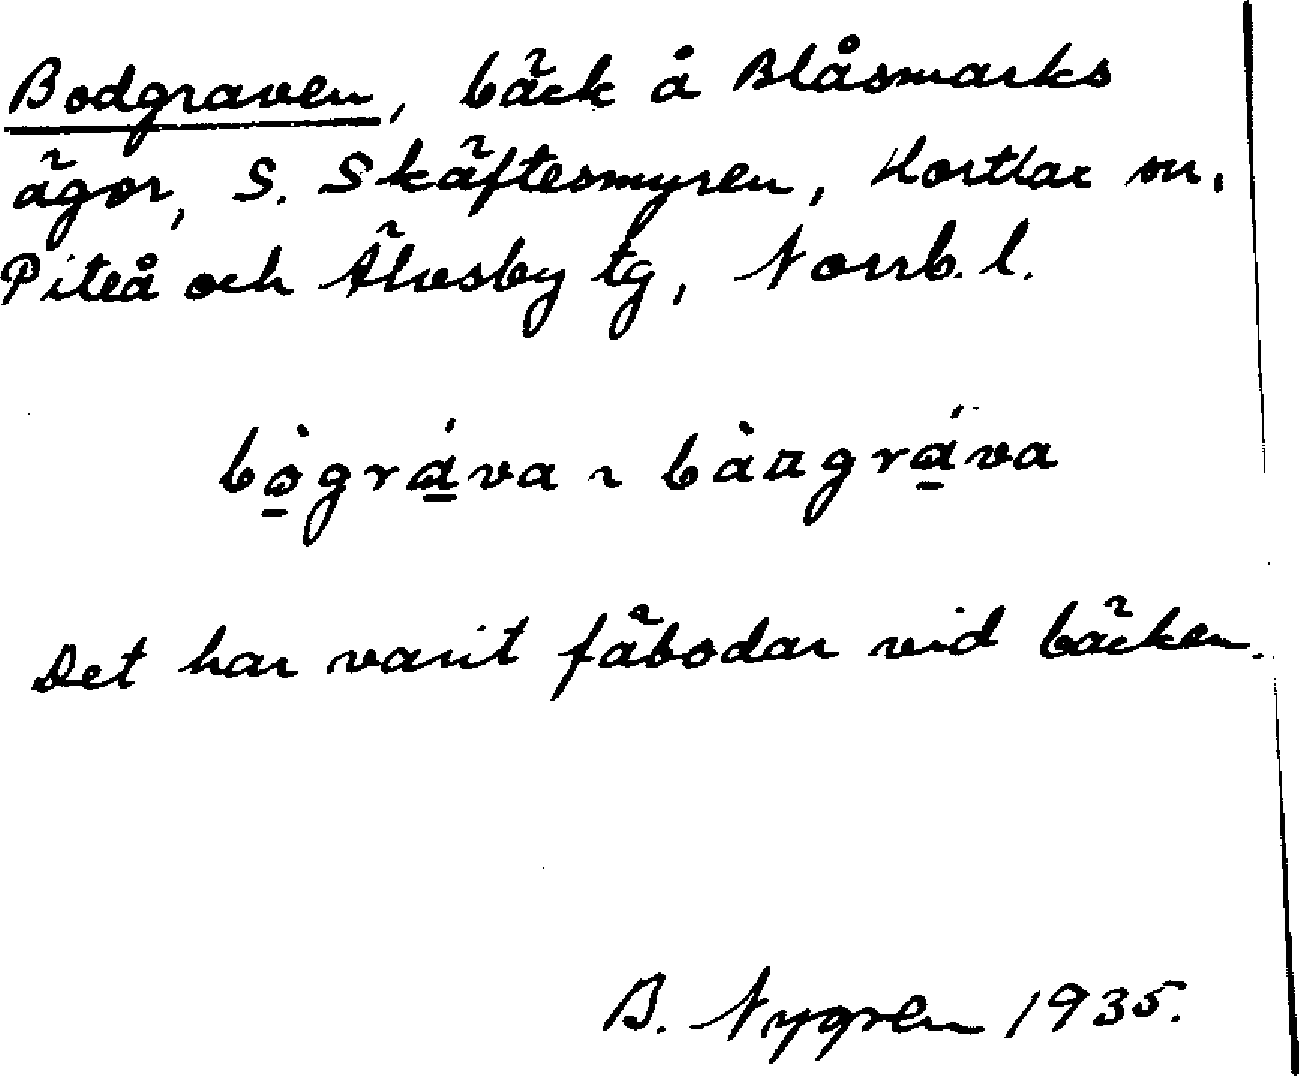 Bodgraven, bäck å Blåsmarks
ägor, S. Skäftesmyren, Hortlax sn.
Piteå och Älvsby tg, Norrb. l.
bò̱grá̱va ~ bàagrá̱va
Det har varit fäbodar vid bäcken.
B. Nygren 1935.